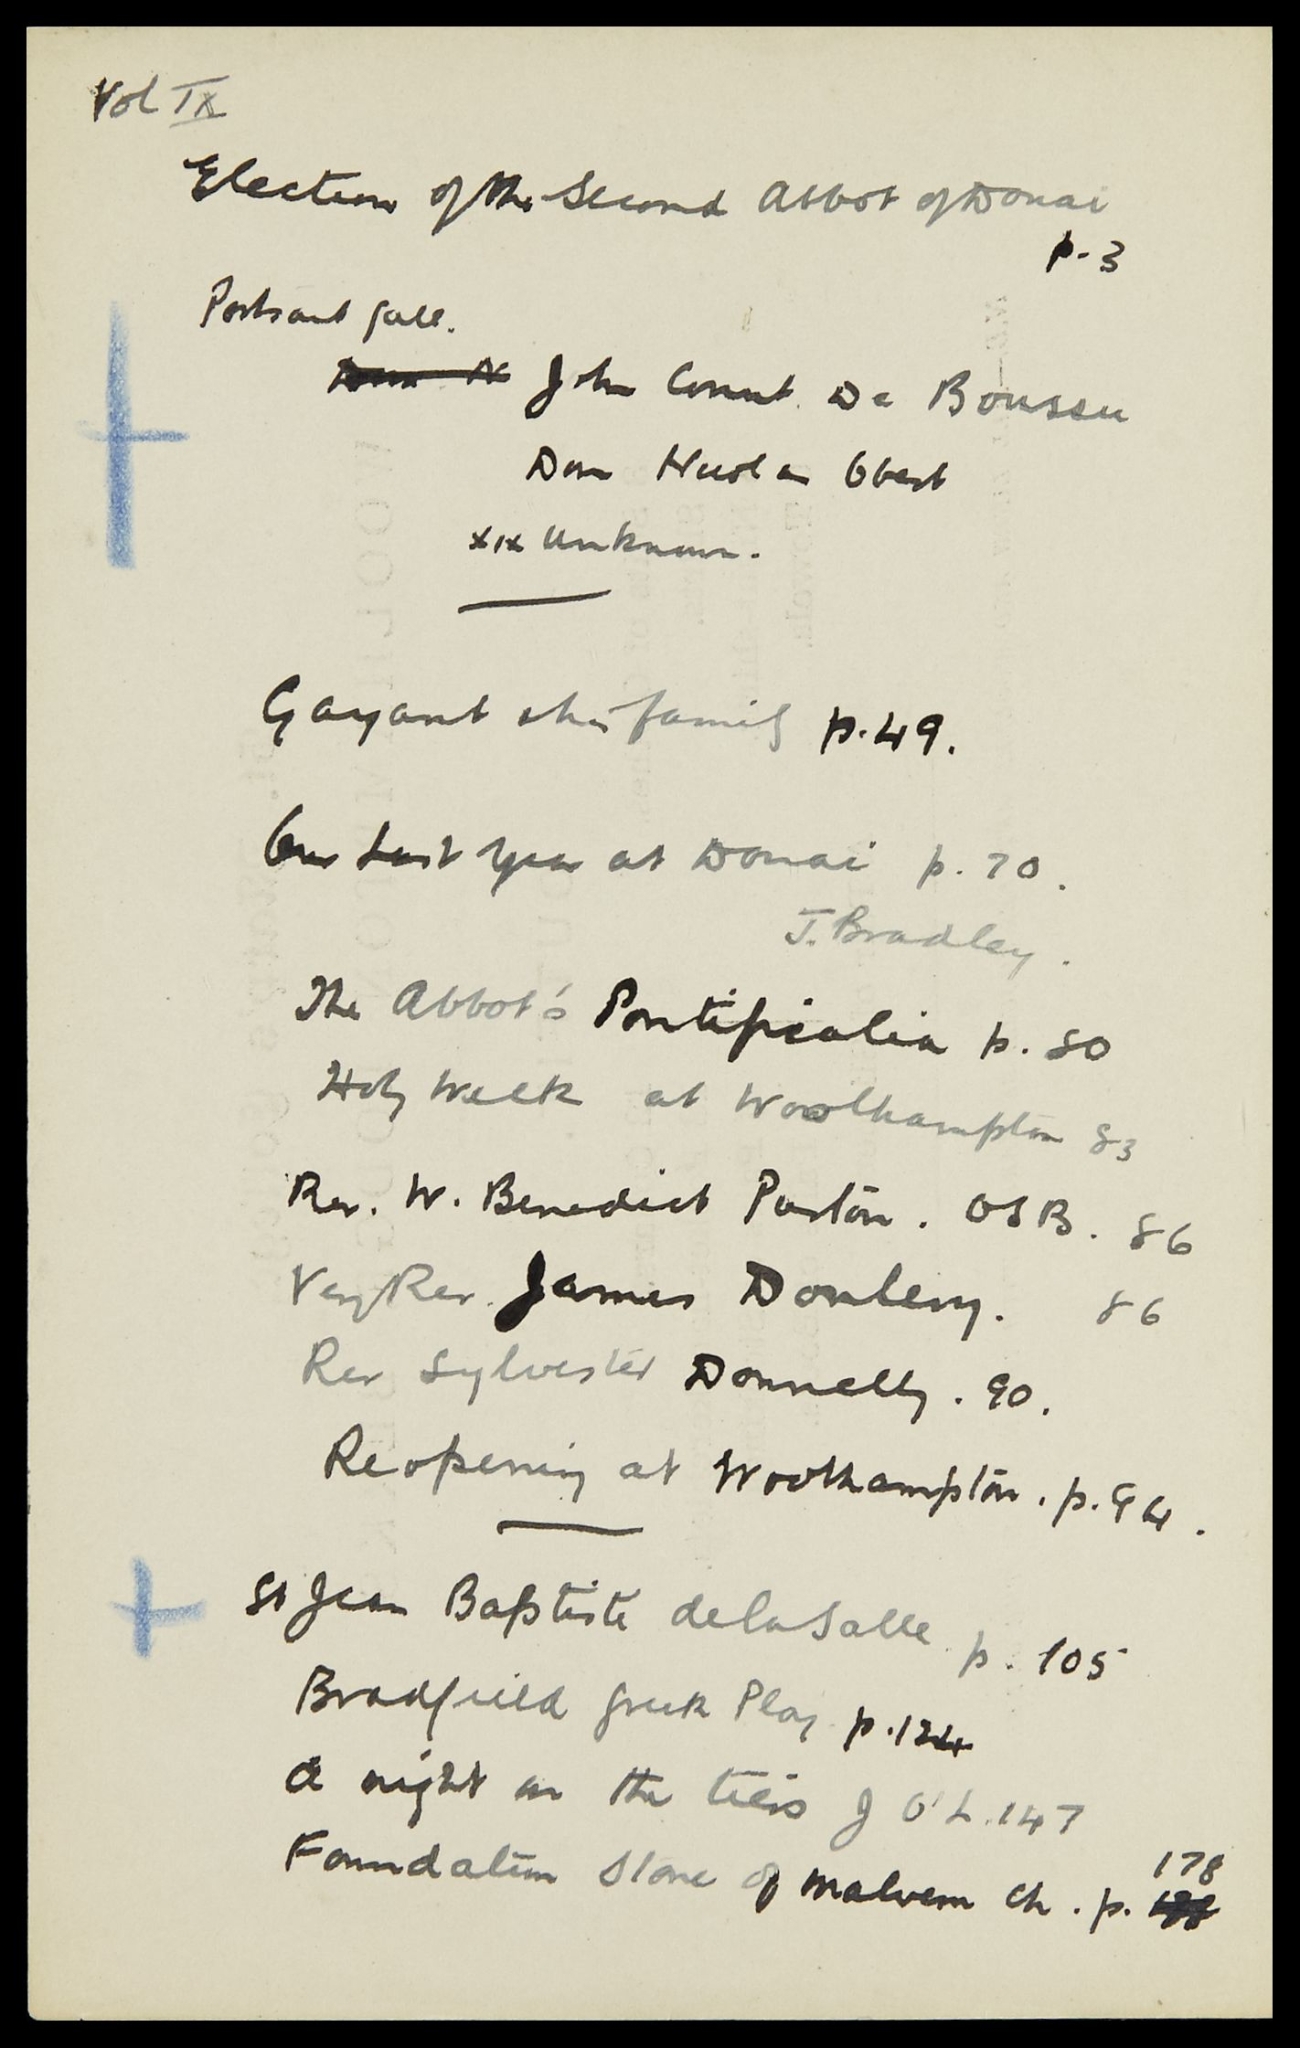 Vol IX
Election of the Second Abbot of Douai
p. 3
Portrait Gall.
John Count De Boussu
Dom Nicolas Obert
xix unknown.
Gayant & his family p. 49.
Our Last Year at Douai p. 70.
J. Bradley.
The Abbot's Pontificalia p. 80
Holy Week at Woolhampton 83
Rev. W. Benedict Paston. OSB. 86
Very Rev. James Donlevy. 86
Rev Sylvester Donnelly. 90.
Reopening at Woolhampton. p. 94.
St Jean Baptiste de la Salle p. 105
Bradfield Greek Play p. 124
A night on the tiles J O'L. 147
Foundation Stone of Malvern Ch. p. 178